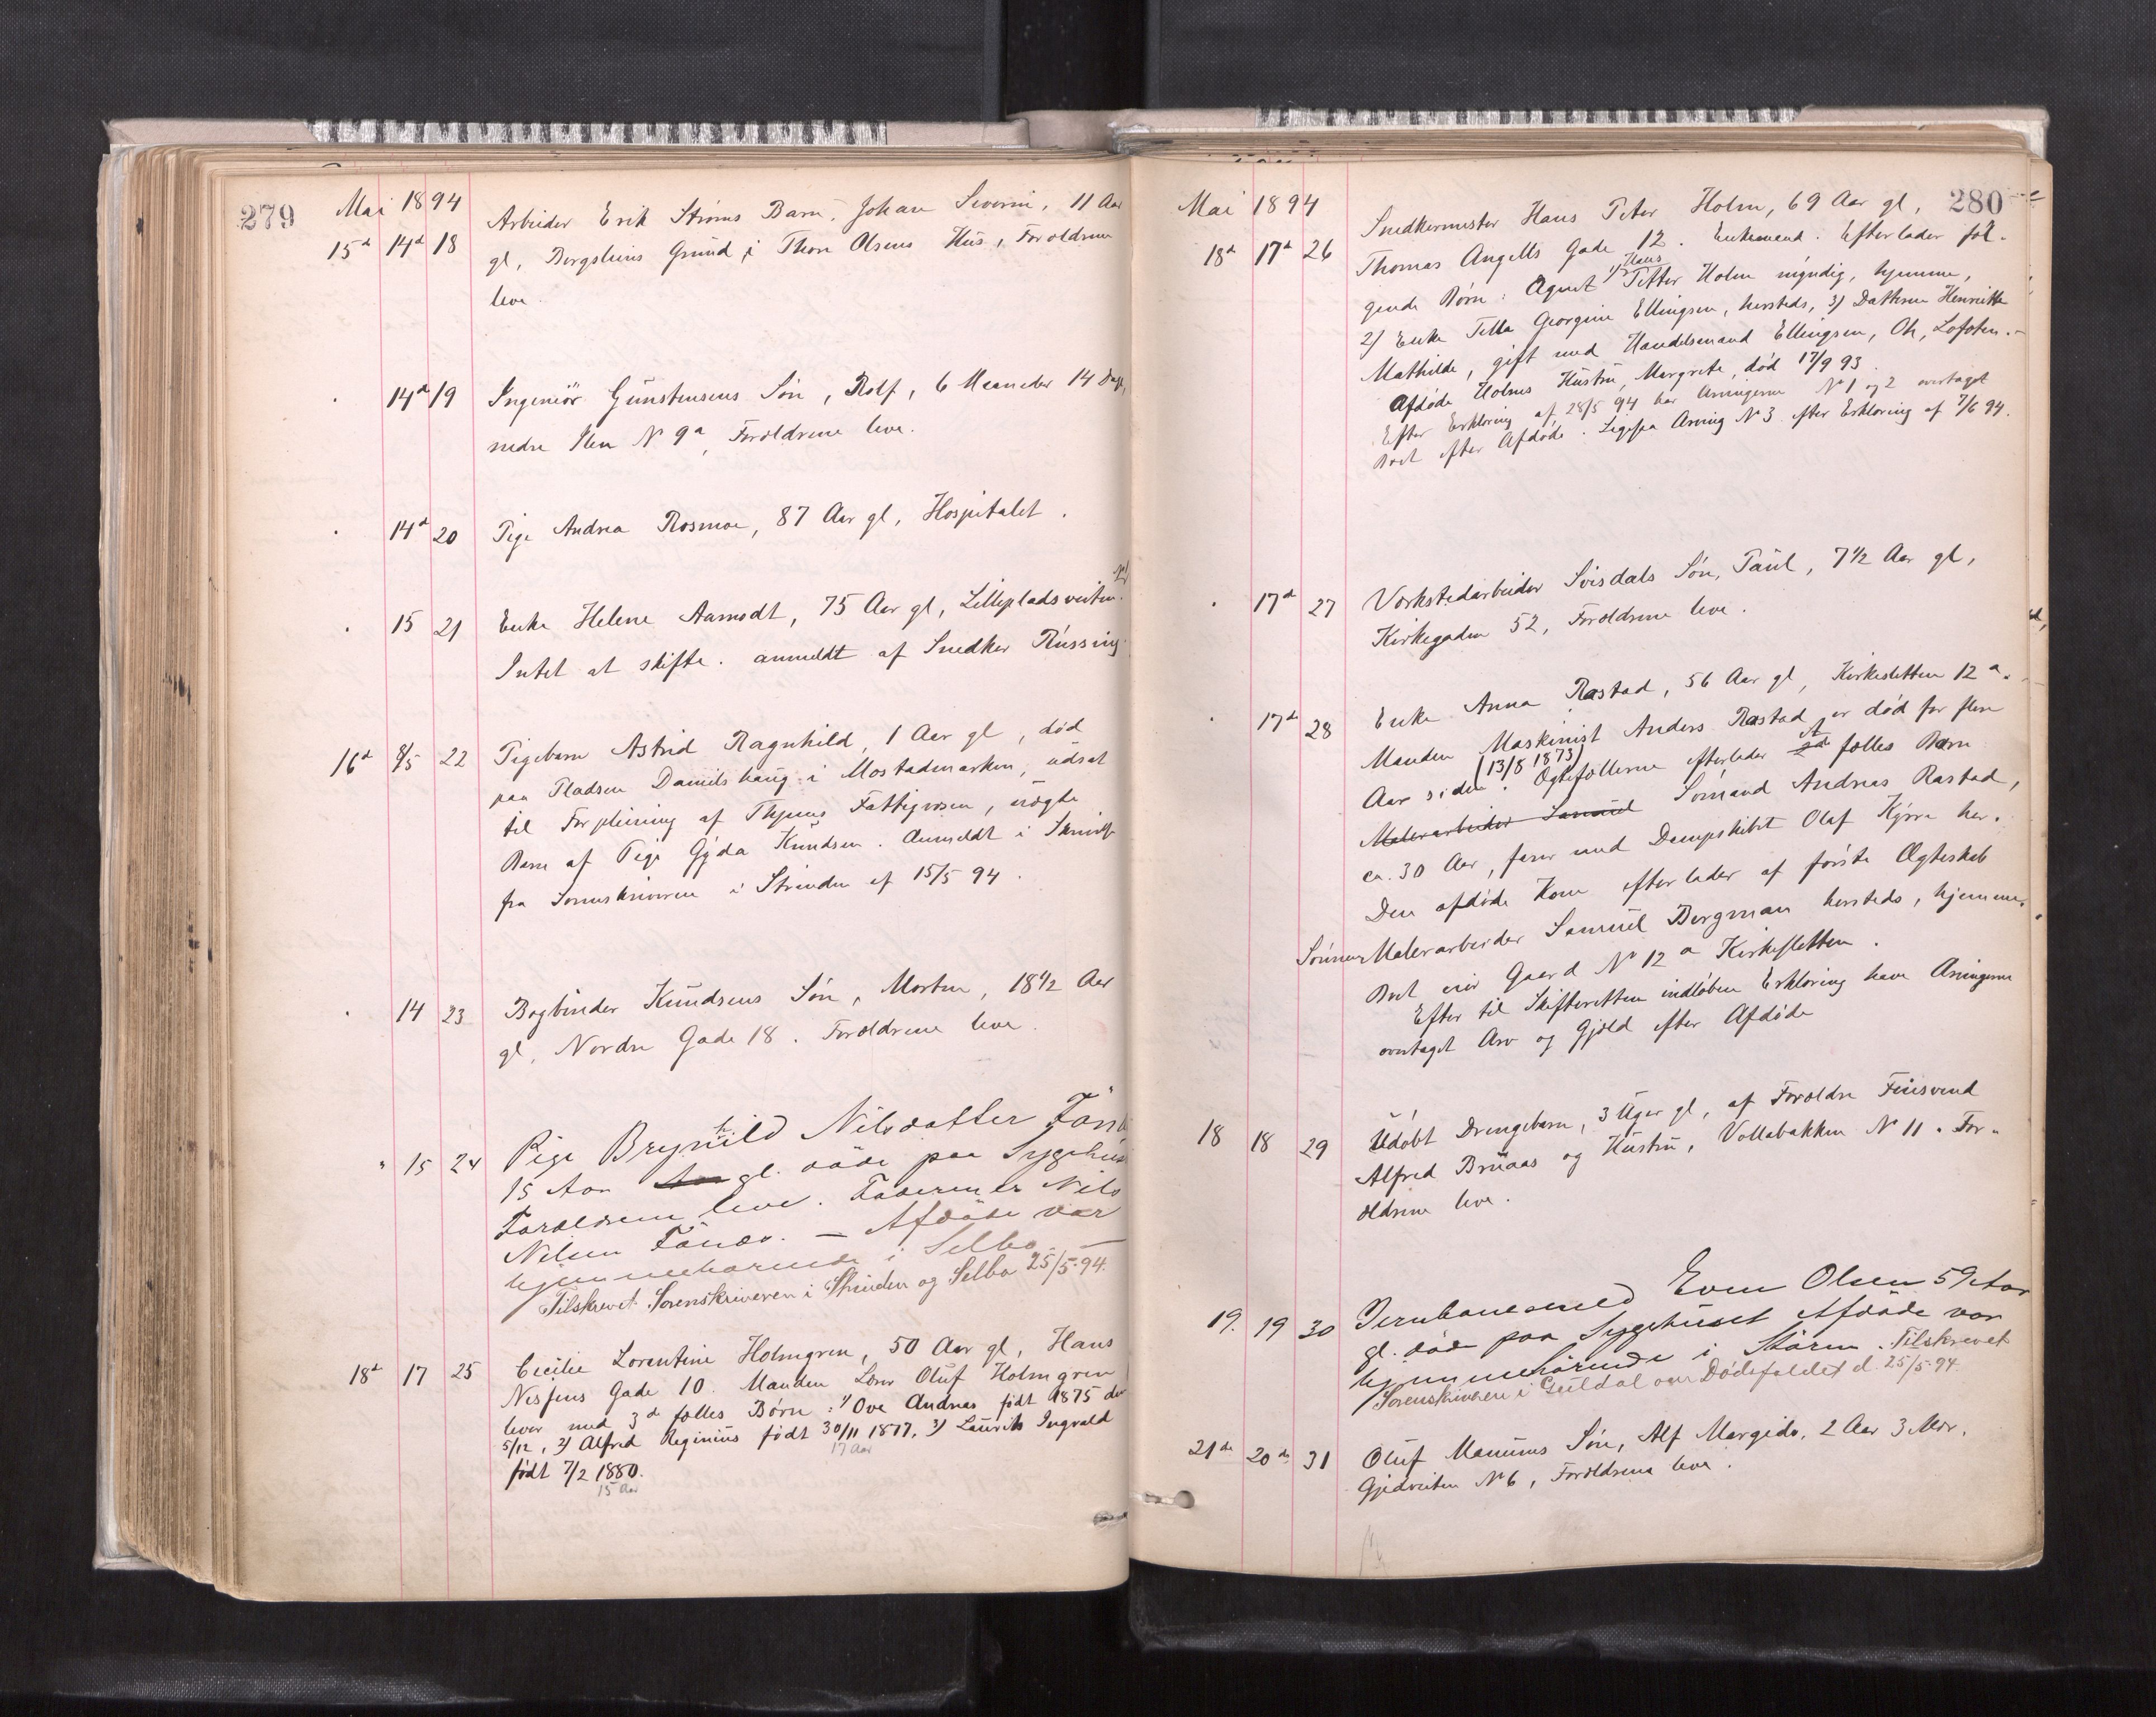 279
Mai 1894
15d 14d 18 Arbeider Erik Strøms Barn, Johan Severin, 11 Aar
gl, Bergsliens Grund i Thore Olsens Hus, Forældrene
leve.
14d 19 Ingeniør Gunstensens Søn, Rolf, 6 Maaneder 14 Dage,
nedre Ilen No 9a, Forældrene leve.
14d 20 Pige Andrea Rosmoe, 87 Aar gl, Hospitalet.
15 21 Enke Helene Aamodt, 75 Aar gl, Lilleplads veiten
Intet at skifte. anmeldt af Snedker Russing.
16d 8/5 22 Pigebarn Astrid Ragnhild, 1 Aar gl, død
paa Pladsen Danielshaug i Mostadmarken, udsat
til Forpleining af Thjems Fattigvæsen, uægte
Barn af Pige Gyda Knudsen. Anmeldt i Skrivelse
fra Sorenskriveren i Strinden af 15/5 94.
14 23 Bogbinder Knudsens Søn, Morten, 18 1/2 Aar
gl, Nordre Gade 18. Forældrene leve.
" 15 24 Pige Brynhild Nilsdatter
15 Aar gl. døde paa Sygehus
Forældrene leve. Faderen er Nils
Nilsen. — Afdøde var
hjemmehørende i Selbo —
Tilskrevet Sorenskriveren i Strinden og Selbo 25/5-94.
18d 17 25 Cecilie Lorentine Holmgren, 50 Aar gl, Hans
Nissens Gade 10. Manden Lars Oluf Holmgren
lever med 3de fælles Børn: 1/ Ove Andreas født 1875 den
5/12, 2/ Alfred Reginius født 30/11 1877, 3/ Laurits Ingvald
17 Aar
født 7/2 1880.
15 Aar
280
Mai 1894
18d 17d 26 Snedkermester Hans Peter Holm, 69 Aar gl,
Thomas Angells Gade 12. Enkemand. Efterlader føl-
Hans
gende Børn: Agent 1/ Petter Holm myndig, hjemme,
2/ Enke Tella Georgine Ellingsen, hersteds, 3/ Datteren Henriette
Mathilde, gift med Handelsmand Ellingsen, Lofoten.-
Afdøde Holms Hustru, Margrete, død 17/9 93.
Efter Erklæring af 28/5 94 har Arvingerne No 1 og 2 overtaget
Boet efter Afdøde. Ligesaa Arving No 3 efter Erklæring af 7/6 94.
17d 27 Værkstedarbeider Svisdals Søn, Paul, 7 1/2 Aar gl,
Kirkegaden 52, Forældrene leve.
17de 28 Enke Anna Rastad, 56 Aar gl, Kirkesletten 12a.
Manden Maskinist Anders Rastad er død for flere
(13/8 1873)
Aar siden. Ægtefællerne efterlader fælles Barn
Malerarbeider Samuel Sømand Andreas Rastad,
ca. 30 Aar, farer med Dampskibet Olaf Kyrre her.
Den afdøde Kone efterlader af første Ægteskab
Sønnen Malerarbeider Samuel Bergman hersteds, hjemme.
Boet eier Gaard No 12a Kirkesletten.
Efter til Skifteretten indløben Erklæring have Arvingerne
overtaget Arv og Gjæld efter Afdøde
18 18 29 Udøbt Drengebarn, 3 Uger gl, af Forældre Feiesvend
Alfred Bruaas og Hustru, Vollabakken No 11. For-
ældrene leve.
19. 19 30 Jernbanesmed Even Olsen 59 Aar
gl. døde paa Sygehuset Afdøde var
hjemmehørende i Støren. Tilskrevet
Sorenskriveren i Guldal om Dødsfaldet d. 25/5-94.
21de 20de 31 Oluf Manums Søn, Alf Margido, 2 Aar 3 Mdr.
Gjedveiten No 6, Forældrene leve.